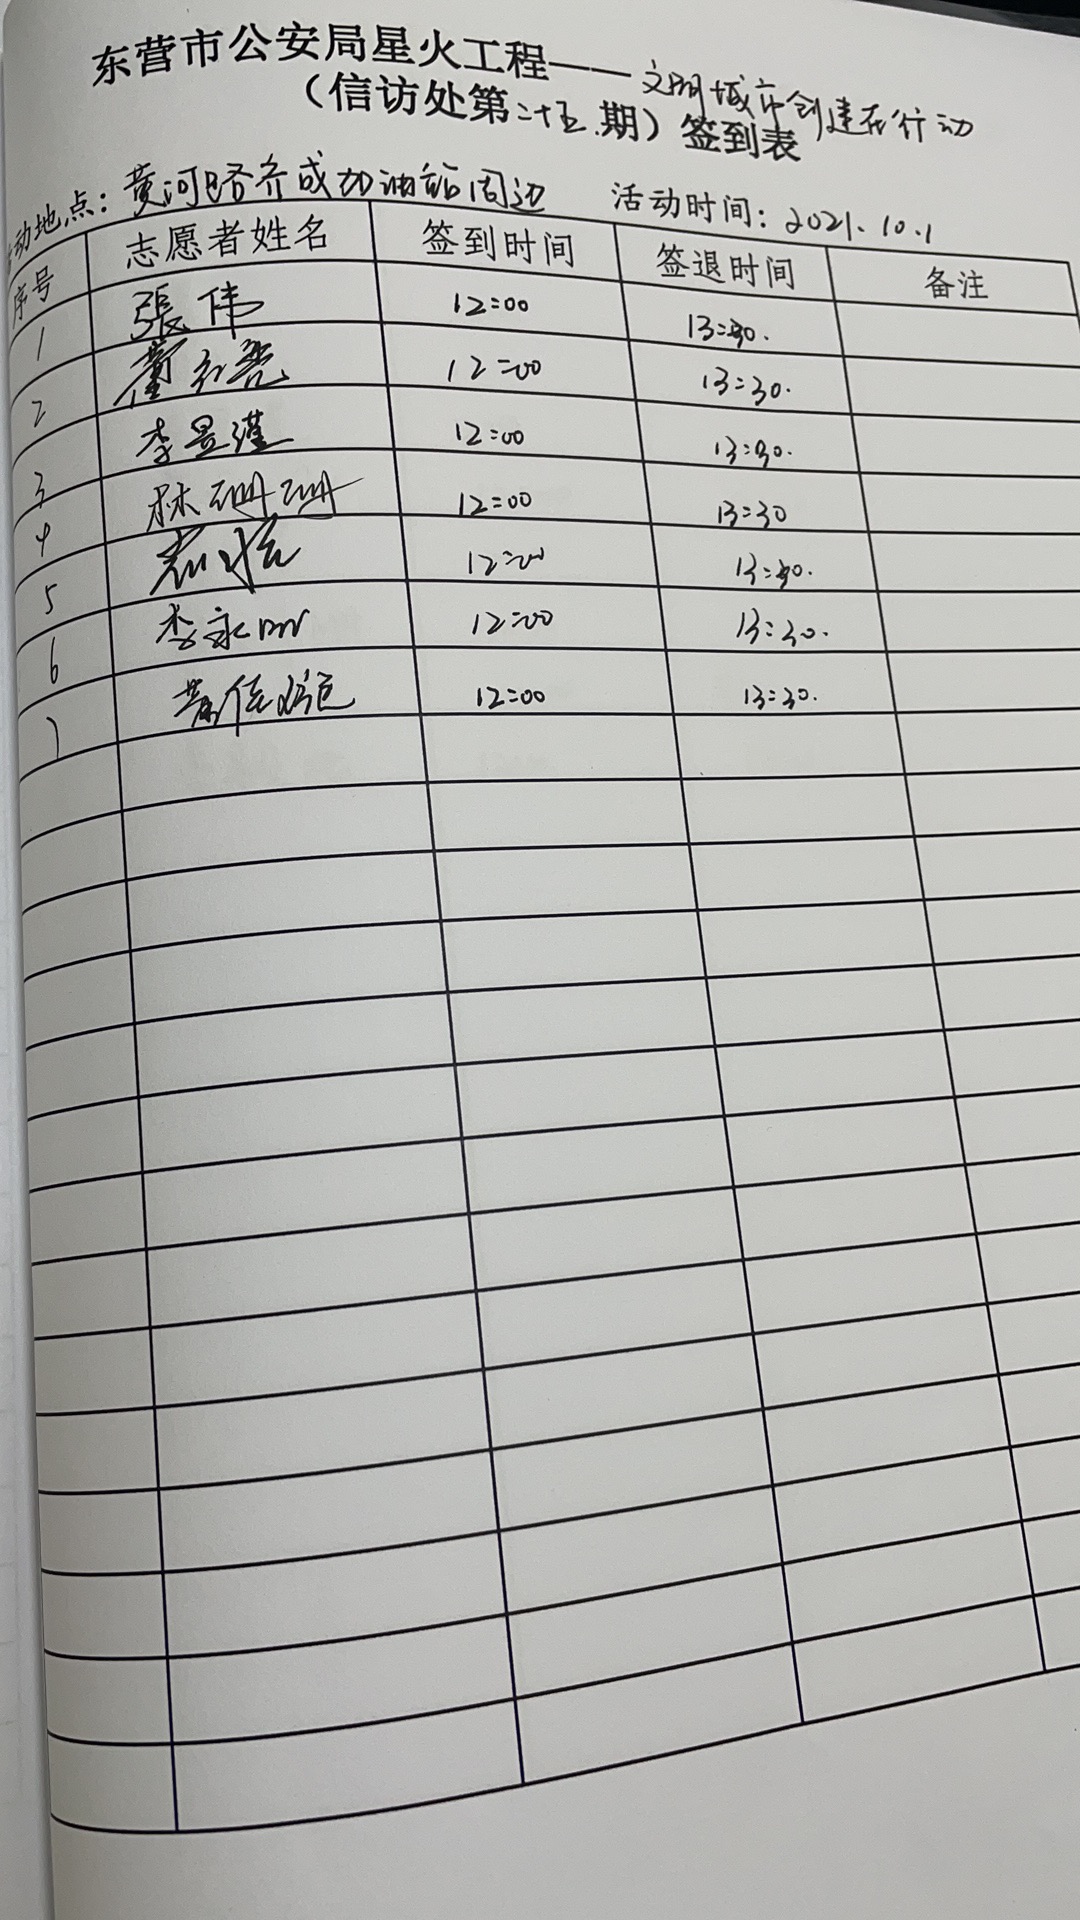 东营市公安局星火工程——文明城市创建在行动
（信访处第二十五期）签到表
动地点：黄河路齐成加油站周边 活动时间：2021.10.1
序号 志愿者姓名 签到时间 签退时间 备注
1 張伟 12:00 13:30.
2 董 12:00 13:30.
3 李昱瑾 12:00 13:30.
4 林珊珊 12:00 13:30
5 12:00 13:30.
6 李永 12:00 13:30.
7 12:00 13:30.